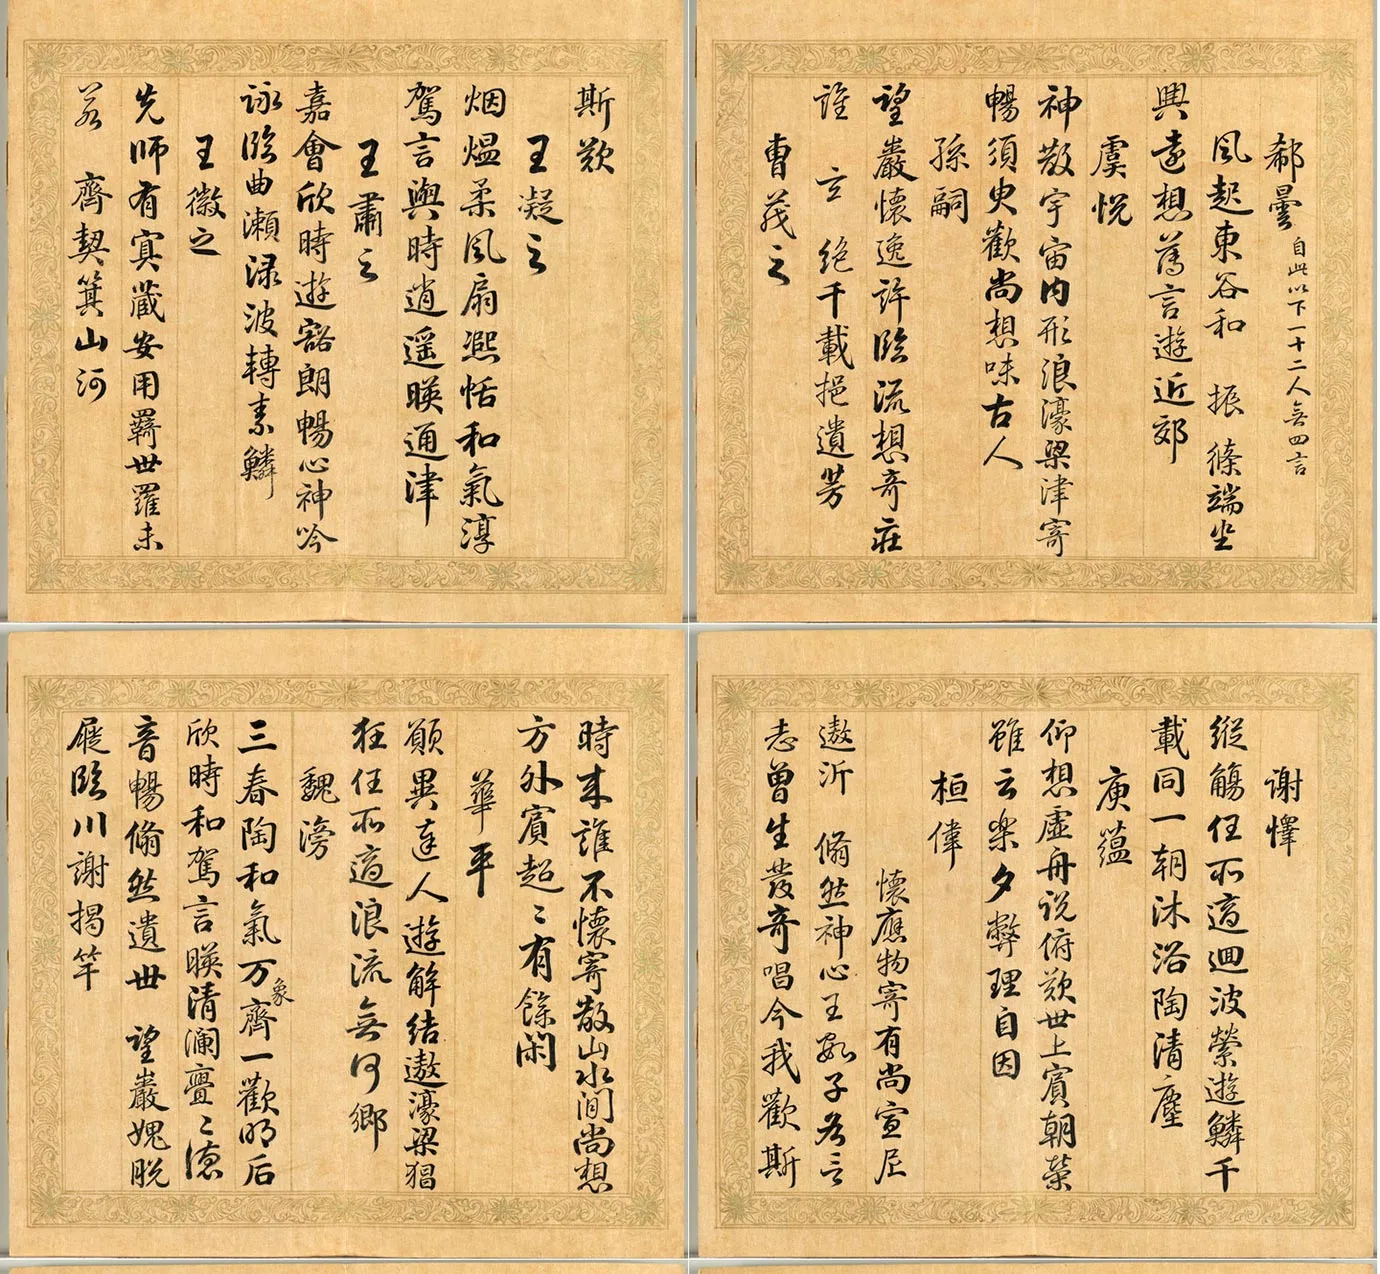 郗曇 自此以下一十二人無四言
風起東谷和 振條端坐
興遠想薄言遊近郊
虞悅
神散宇宙內形浪濠梁津寄
暢須臾歡尚想味古人
孫嗣
望巖懷逸許臨流想奇莊
誰 云絕千載挹遺芳
曹茂之
斯歎
王凝之
烟熅柔風扇熙恬和氣淳
駕言興時逍遥暎通津
王肅之
嘉會欣時遊豁朗暢心神吟
詠臨曲瀨渌波轉素鱗
王徽之
先師有冥藏安用羈世羅未
若 齊契箕山河
謝懌
縱觴任所適迴波縈遊鱗千
載同一朝沐浴陶清塵
庾蘊
仰想虛舟說俯歎世上賓朝榮
雖云樂夕弊理自因
桓偉
懷應物寄有尚宣尼
遨沂 翛然神心王數子各言
志曾生發奇唱今我歡斯
時来誰不懷寄散山水間尚想
方外賓超〻有餘閑
華平
願與達人遊解結遨濠梁狂
狂任所適浪流無何鄉
魏滂
三春陶和氣万象齊一歡明后
欣時和駕言暎清瀾亹〻德
音暢翛然遺世 望巖愧脫
屣臨川謝揭竿